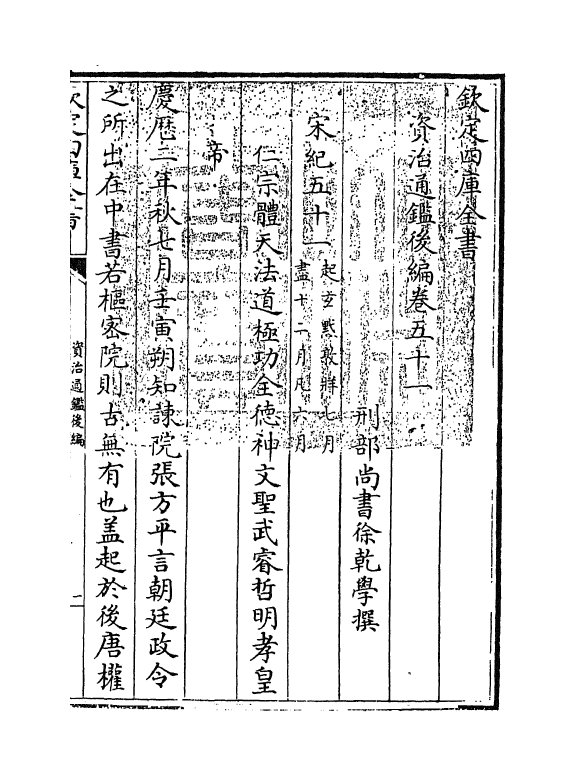 欽定四庫全書
資治通鑑後編卷五十一
刑部尚書徐乾學撰
宋紀五十一起玄黓敦牂七月盡十二月凡六月
仁宗體天法道極功全徳神文聖武睿哲明孝皇
帝
慶歴二年秋七月壬寅朔知諫院張方平言朝廷政令
之所出在中書若樞密院則古無有也盖起於後唐權
欽定四庫全書
資治通鑑後編